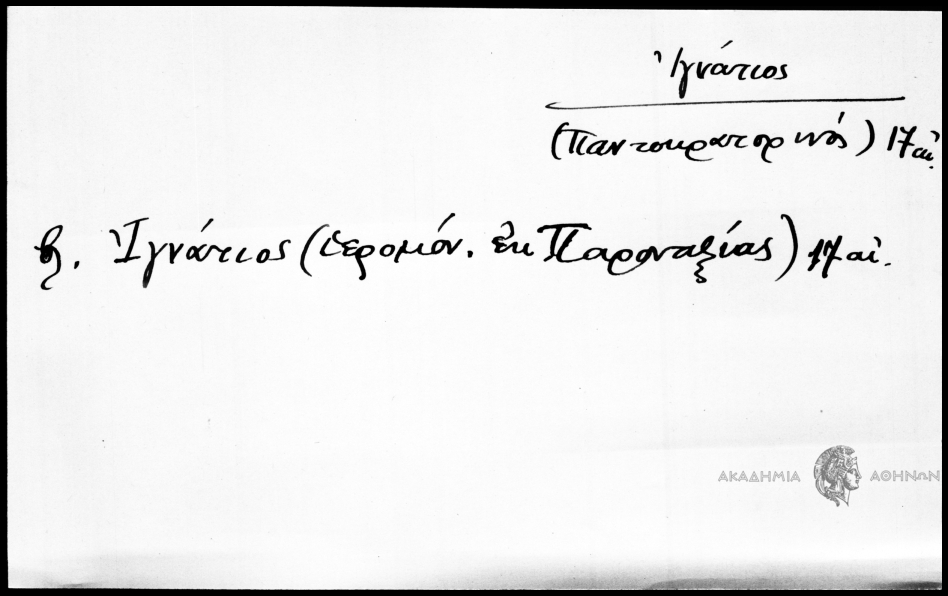 Ἰγνάτιος
(Παντοκρατορινός) 17 αἰ.
β. Ἰγνάτιος (ἱερομόν. ἐκ Παροναξίας) 17 αἰ.
ΑΚΑΔΗΜΙΑ ΑΘΗΝΩΝ